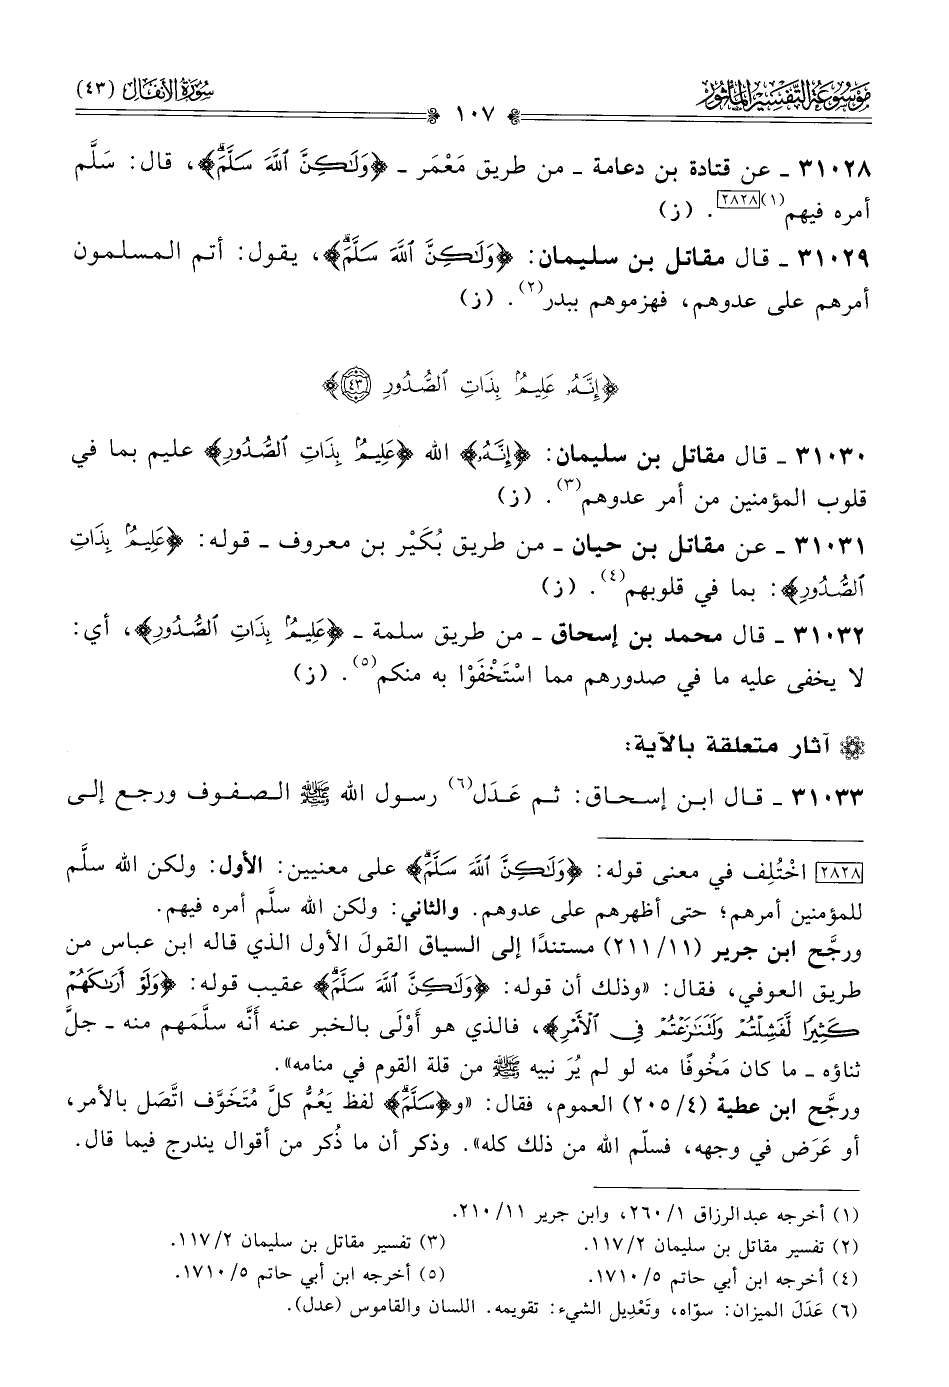 موسوعة التفسير المأثور
سورة الأنفال (٤٣)
١٠٧
٣١٠٢٨ ـ عن قتادة بن دعامة ـ من طريق مَعْمَر ـ ﴿وَلَٰكِنَّ ٱللَّهَ سَلَّمَۗ﴾، قال: سَلَّم
أمره فيهم(١)[٢٨٢٨]. (ز)
٣١٠٢٩ ـ قال مقاتل بن سليمان: ﴿وَلَٰكِنَّ ٱللَّهَ سَلَّمَۗ﴾، يقول: أتم المسلمون
أمرهم على عدوهم، فهزموهم ببدر(٢). (ز)
﴿إِنَّهُۥ عَلِيمُۢ بِذَاتِ ٱلصُّدُورِ ٤٣﴾
٣١٠٣٠ ـ قال مقاتل بن سليمان: ﴿إِنَّهُۥ﴾ الله ﴿عَلِيمُۢ بِذَاتِ ٱلصُّدُورِ﴾ عليم بما في
قلوب المؤمنين من أمر عدوهم(٣). (ز)
٣١٠٣١ ـ عن مقاتل بن حيان ـ من طريق بُكَيْر بن معروف ـ قوله: ﴿عَلِيمُۢ بِذَاتِ
ٱلصُّدُورِ﴾: بما في قلوبهم(٤). (ز)
٣١٠٣٢ ـ قال محمد بن إسحاق ـ من طريق سلمة ـ ﴿عَلِيمُۢ بِذَاتِ ٱلصُّدُورِ﴾، أي:
لا يخفى عليه ما في صدورهم مما اسْتَخْفَوْا به منكم(٥). (ز)
آثار متعلقة بالآية:
٣١٠٣٣ ـ قال ابن إسحاق: ثم عَدَل(٦) رسول الله ﷺ الصفوف ورجع إلى
[٢٨٢٨] اخْتُلِف في معنى قوله: ﴿وَلَٰكِنَّ ٱللَّهَ سَلَّمَۗ﴾ على معنيين: الأول: ولكن الله سلَّم
للمؤمنين أمرهم؛ حتى أظهرهم على عدوهم. والثاني: ولكن الله سلَّم أمره فيهم.
ورجَّح ابن جرير (٢١١/١١) مستندًا إلى السياق القولَ الأول الذي قاله ابن عباس من
طريق العوفي، فقال: «وذلك أن قوله: ﴿وَلَٰكِنَّ ٱللَّهَ سَلَّمَۗ﴾ عقيب قوله: ﴿وَلَوْ أَرَىٰكَهُمْ
كَثِيرًا لَّفَشِلْتُمْ وَلَتَنَٰزَعْتُمْ فِى ٱلْأَمْرِ﴾، فالذي هو أَوْلَى بالخبر عنه أنَّه سلَّمَهم منه ـ جلَّ
ثناؤه ـ ما كان مَخُوفًا منه لو لم يُرَ نبيه ﷺ من قلة القوم في منامه».
ورجَّح ابن عطية (٢٠٥/٤) العموم، فقال: «و﴿سَلَّمَۗ﴾ لفظ يَعُمُّ كلَّ مُتَخَوَّف اتَّصَل بالأمر،
أو عَرَض في وجهه، فسلّم الله من ذلك كله». وذكر أن ما ذُكر من أقوال يندرج فيما قال.
(١) أخرجه عبدالرزاق ٢٦٠/١، وابن جرير ٢١٠/١١.
(٢) تفسير مقاتل بن سليمان ١١٧/٢. (٣) تفسير مقاتل بن سليمان ١١٧/٢.
(٤) أخرجه ابن أبي حاتم ١٧١٠/٥. (٥) أخرجه ابن أبي حاتم ١٧١٠/٥.
(٦) عَدَلَ الميزان: سوّاه، وتَعْدِيل الشيء: تقويمه. اللسان والقاموس (عدل).